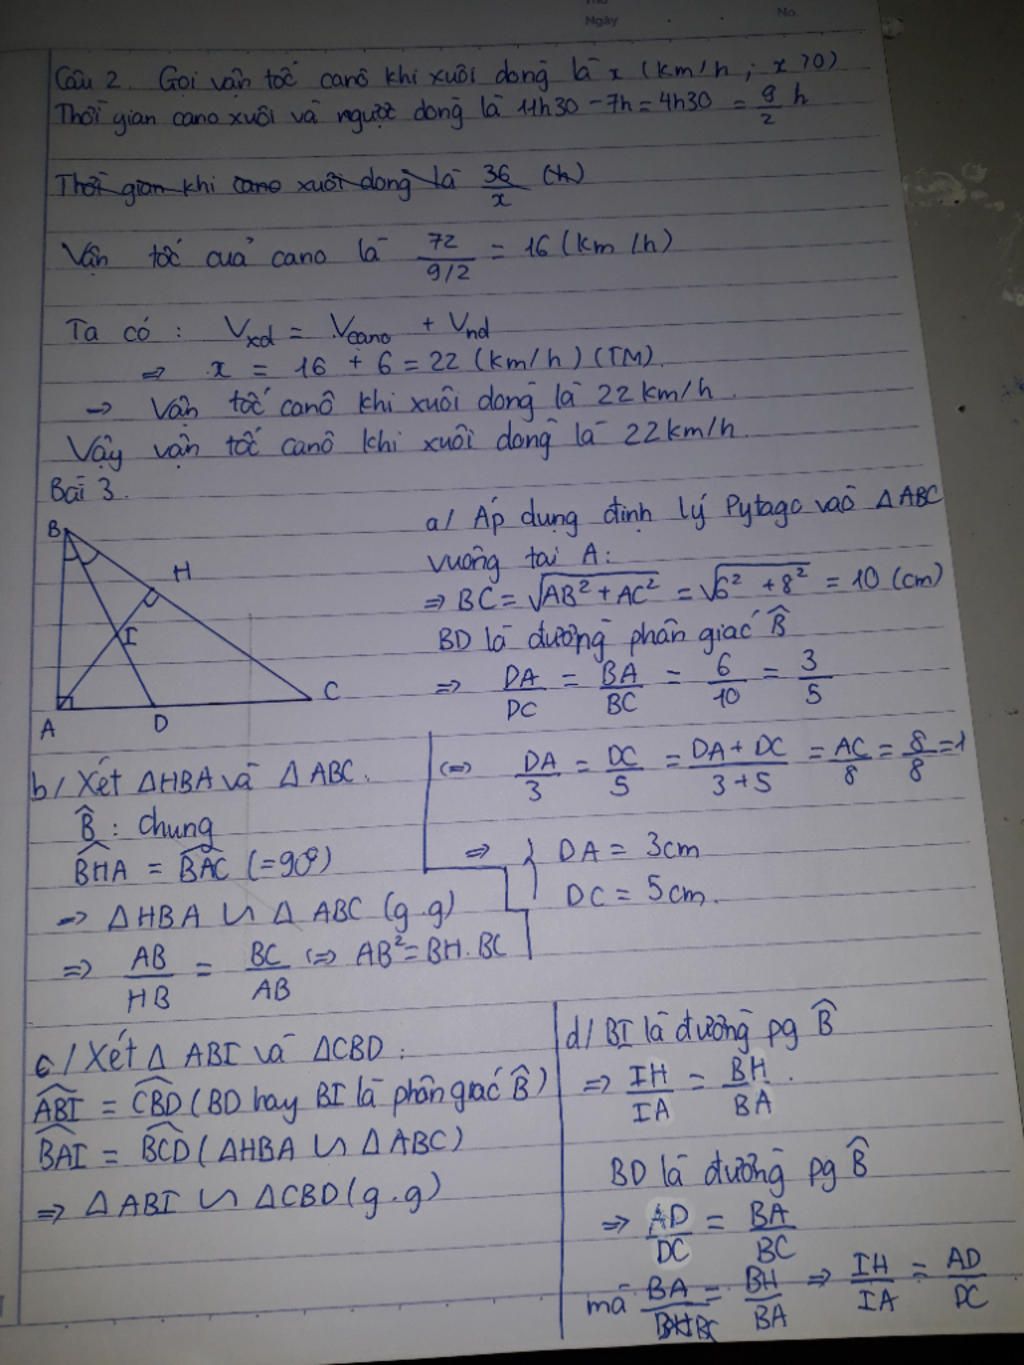 Thứ
Ngày
No.
Câu 2. Gọi vận tốc canô khi xuôi dòng là x (km/h; x>0)
Thời gian cano xuôi và ngược dòng là 11h30 - 7h = 4h30 = 9/2 h
Thời gian khi cano xuôi dòng là 36/x (h)
Vận tốc của cano là 72/(9/2) = 16 (km/h)
Ta có: Vxd = Vcano + Vnd
⇒ x = 16 + 6 = 22 (km/h) (TM).
→ Vận tốc canô khi xuôi dòng là 22km/h.
Vậy vận tốc canô khi xuôi dòng là 22km/h.
Bài 3.
B
H
I
A
D
C
a/ Áp dụng định lý Pytago vào ΔABC
vuông tại A:
⇒ BC = √(AB² + AC²) = √(6² + 8²) = 10 (cm)
BD là đường phân giác B̂
⇒ DA/DC = BA/BC = 6/10 = 3/5
(=) DA/3 = DC/5 = (DA + DC)/(3+5) = AC/8 = 8/8 = 1
⇒ { DA = 3cm
DC = 5cm.
b/ Xét ΔHBA và ΔABC.
B̂ : chung
BHA = BAC (=90º)
→ ΔHBA ∽ ΔABC (g.g)
⇒ AB/HB = BC/AB (⇒ AB² = BH.BC
c/ Xét Δ ABI và ΔCBD :
ABI = CBD (BD hay BI là phân giác B̂)
BAI = BCD (ΔHBA ∽ ΔABC)
⇒ ΔABI ∽ ΔCBD (g.g)
d/ BI là đường pg B̂
⇒ IH/IA = BH/BA.
BD là đường pg B̂
⇒ AD/DC = BA/BC
mà BA/BC = BH/BA ⇒ IH/IA = AD/DC